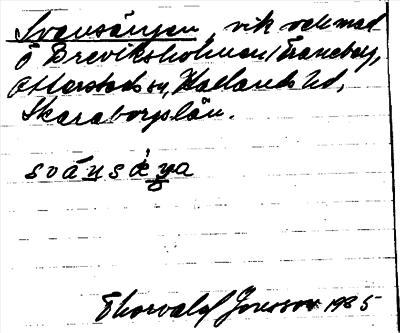 Svansängen, vik och mad
å Breviksholmen, Traneberg,
Otterstads sn, Kållands hd,
Skaraborgs län.
svánsæ̀ŋa
Thorvald Jonsson 1935